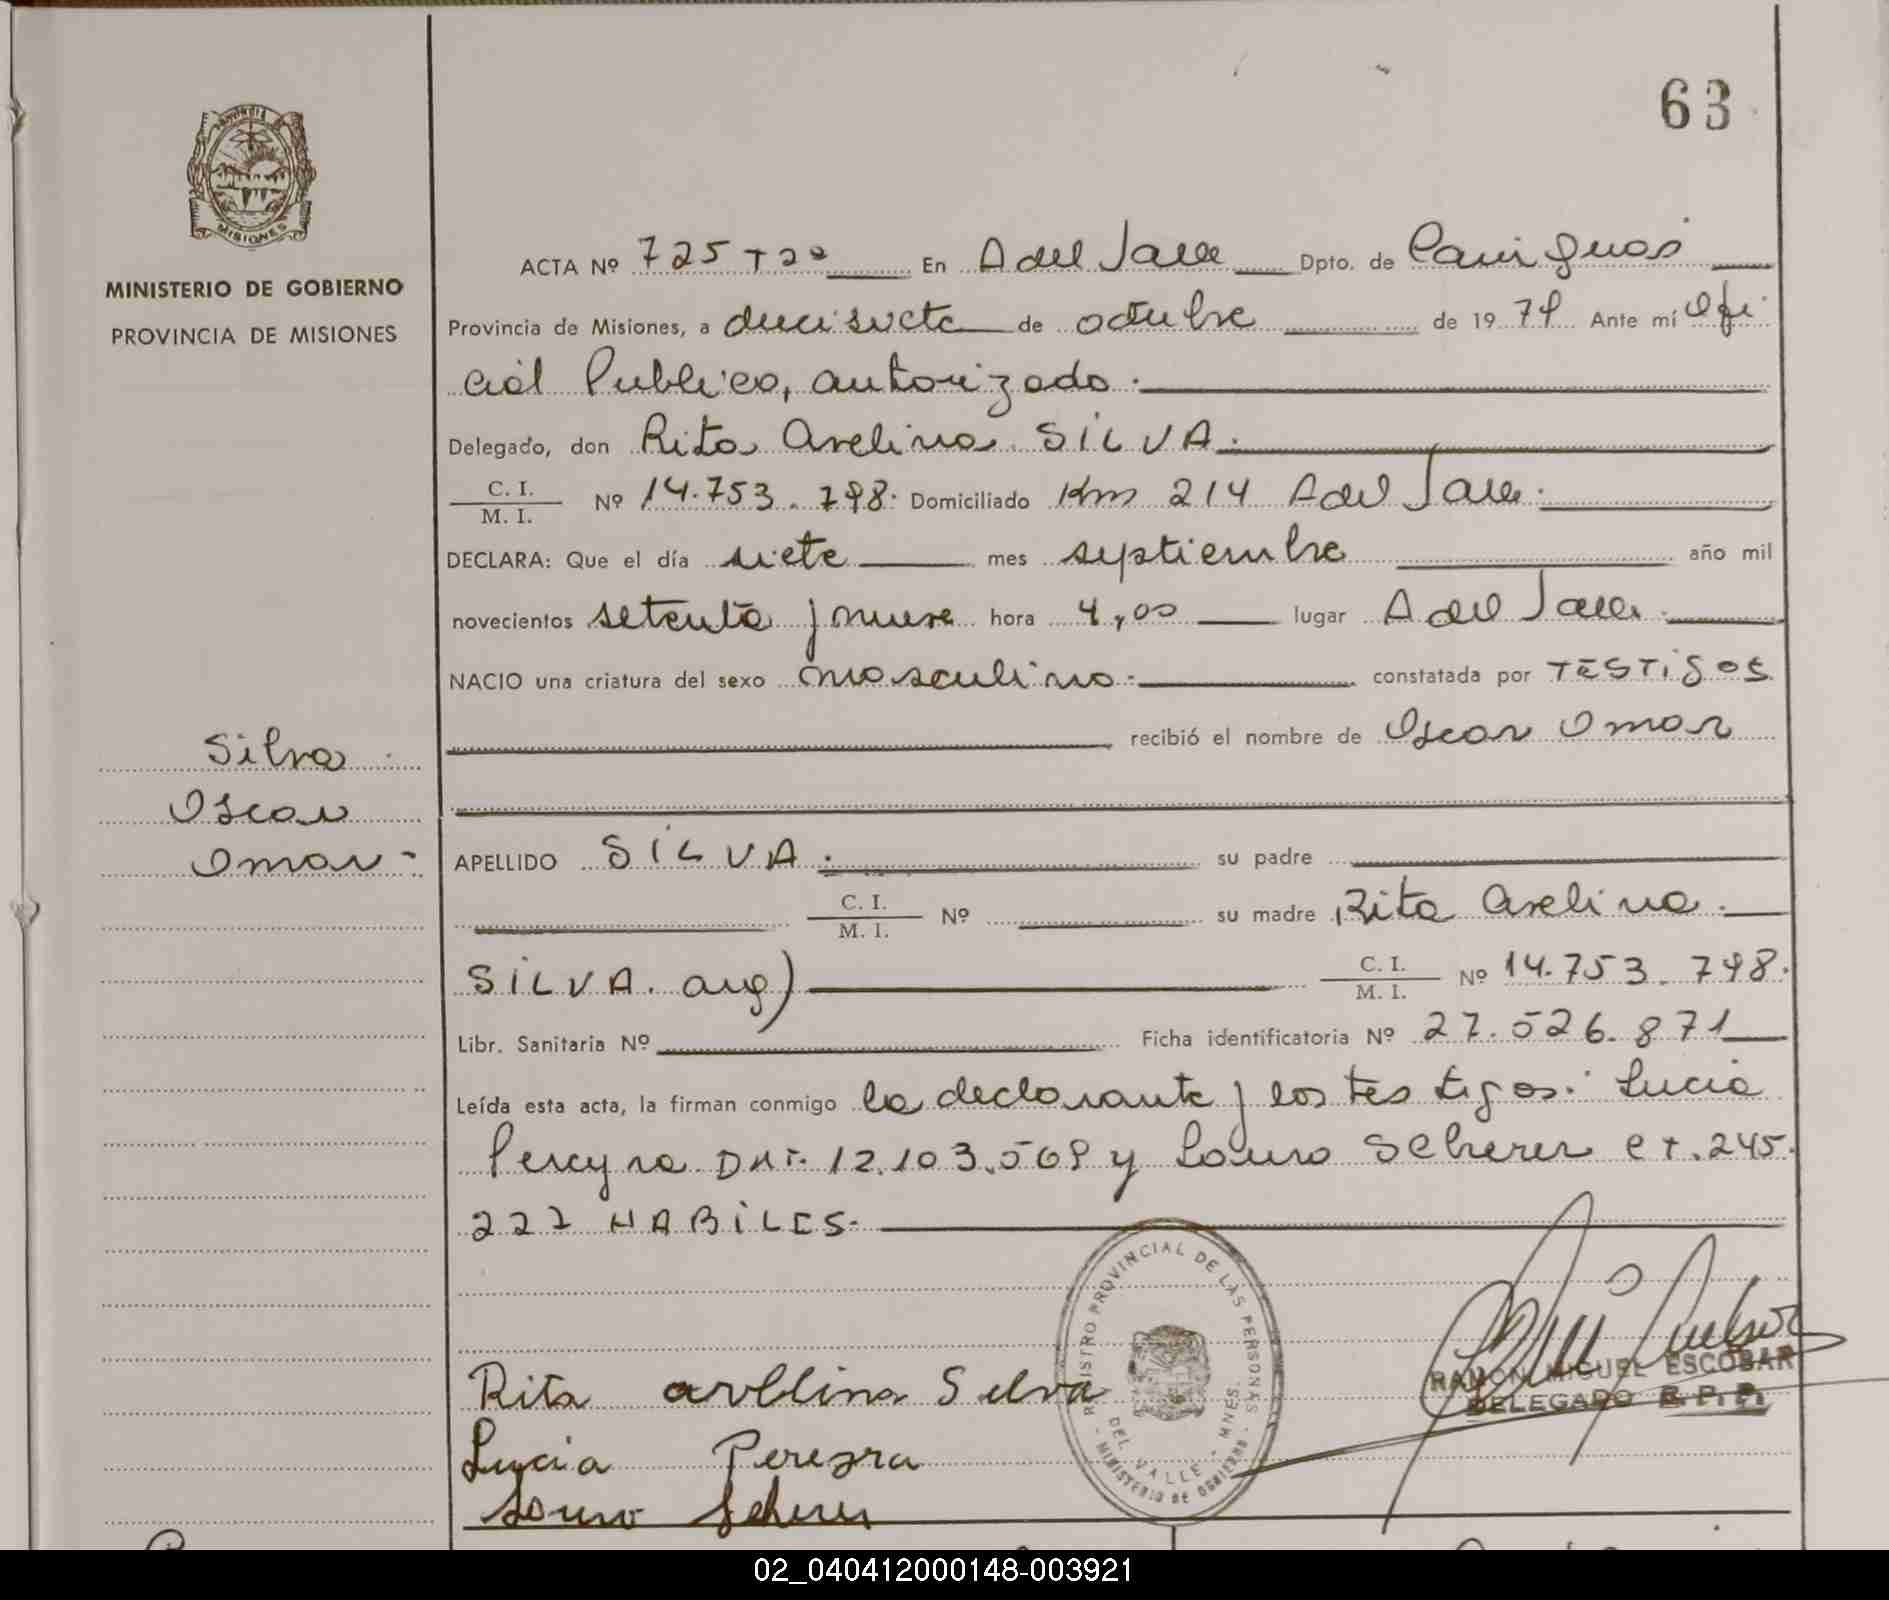 63
MISIONES
MINISTERIO DE GOBIERNO
PROVINCIA DE MISIONES
ACTA Nº 725 Tº En A del Valle Dpto. de Cainguas
Provincia de Misiones, a diecisiete de octubre de 1979 Ante mí Ofi
cial Publico, autorizado.
Delegado, don Rita Avelina SILVA.
C. I.
M. I.
Nº 14.753.798. Domiciliado Km 214 A del Valle.
DECLARA: Que el día siete mes septiembre año mil
novecientos setenta y nueve hora 4,00 lugar A del Valle.
NACIO una criatura del sexo masculino. constatada por TESTIGOS
recibió el nombre de Oscar Omar
Silva
Oscar
Omar.-
APELLIDO SILVA. su padre
C. I.
M. I.
Nº su madre Rita Avelina.
SILVA. arg) C. I.
M. I.
Nº 14.753.798.
Libr. Sanitaria Nº Ficha identificatoria Nº 27.526.871
Leída esta acta, la firman conmigo la declarante y los testigos: Lucia
Pereyra DNI. 12.103.569 y Lauro Scherer CI. 245.
227 HABILES.
REGISTRO PROVINCIAL DE LAS PERSONAS
DEL VALLE - MNES.
- MINISTERIO DE GOBIERNO -
Rita avelina Silva
RAMON MIGUEL ESCOBAR
DELEGADO R. P. P.
Lucia Pereyra
Lauro Scherer
02_040412000148-003921